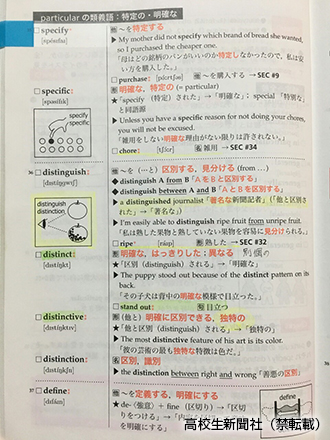 particular の類義語：特定の・明確な
specify
他 〜を特定する
My mother did not specify which brand of bread she wanted,
so I purchased the cheaper one.
「母はどの銘柄のパンがいいのか特定しなかったので，私は安
い方を購入した。」
purchase: 他 〜を購入する → SEC #9
specific:
形 明確な，特定の (= particular)
★「specify（特定）された」→「明確な」；special「特別な」
と同語源
specify
specific
Unless you have a specific reason for not doing your chores,
you will not be excused.
「雑用をしない明確な理由がない限りは許されない。」
chore: 名 雑用 → SEC #34
36 distinguish:
他 〜を (…と) 区別する，見分ける (from …)
distinguish A from B 「AをBと区別する」
distinguish between A and B 「AとBを区別する」
a distinguished journalist 「著名な新聞記者」(「他と区別さ
れた」→「著名な」)
distinguish
distinction
I'm easily able to distinguish ripe fruit from unripe fruit.
「私は熟した果物と熟していない果物を容易に見分けられる。」
ripe 形 熟した → SEC #32
distinct:
形 明確な，はっきりした；異なる
★「区別 (distinguish) される」→「明確な」
The puppy stood out because of the distinct pattern on its
back.
「その子犬は背中の明確な模様で目立った。」
stand out: 目立つ
distinctive:
形 (他と) 明確に区別できる，独特の
★「他と区別 (distinguish) される」→「独特の」
The most distinctive feature of his art is its color.
「彼の芸術の最も独特な特徴は色だ。」
distinction:
名 区別，識別
the distinction between right and wrong 「善悪の区別」
37 define:
他 〜を定義する，明確にする
★ de-（強意）+ fine（区切り）→「区切
りをつける」→
明確にする」
define
高校生新聞社（禁転載）